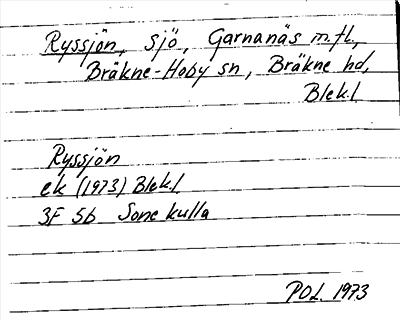 Ryssjön, sjö, Garnanäs m.fl.,
Bräkne-Hoby sn, Bräkne hd,
Blek.l
Ryssjön
ek (1973) Blek.l
3F 5b Sonekulla
POL. 1973